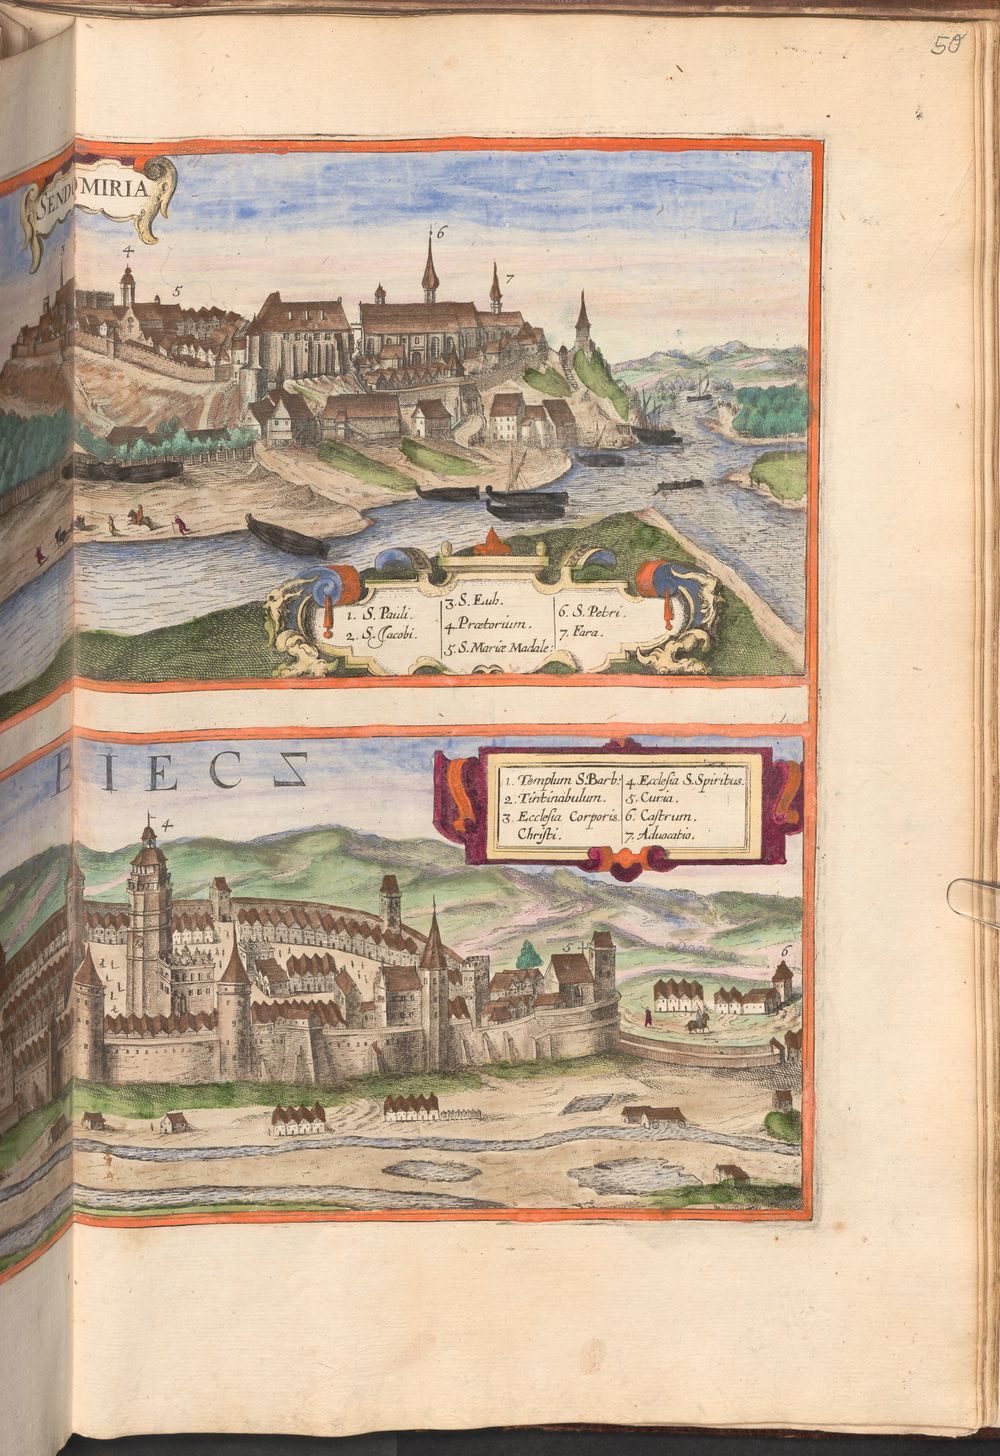 50
SENDOMIRIA
3
4
5
6
7
1. S. Pauli.
2. S. Jacobi.
3. S. Euh.
4. Prætorium.
5. S. Mariæ Madale:
6. S. Petri.
7. Fara.
BIECZ
1. Templum S. Barb:
2. Tintinabulum.
3. Ecclesia Corporis
Christi.
4. Ecclesia S. Spiritus.
5. Curia.
6. Castrum.
7. Aduocatio.
4
5
6